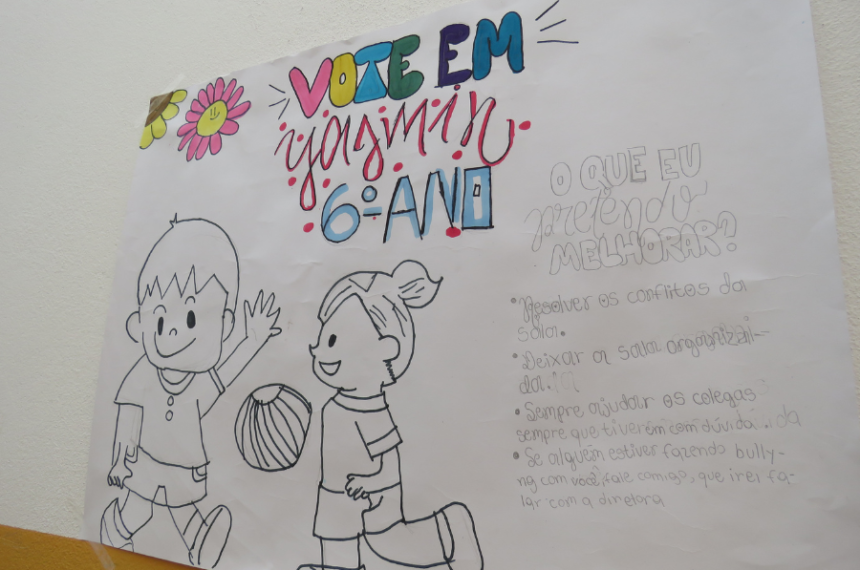 VOTE EM
yasmin
6º ANO
O QUE EU
pretendo
MELHORAR?
• Resolver os conflitos da
sala.
• Deixar a sala organiza-
da.
• Sempre ajudar os colegas
sempre que tiverem com dúvida
• Se alguém estiver fazendo bully-
ng com você, fale comigo, que irei fa-
lar com a diretora